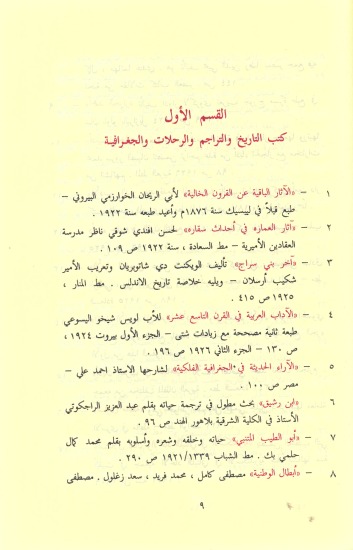 القسم الأول
كتب التاريخ والتراجم والرحلات والجغرافيـة
١ – «الآثار الباقية عن القرون الخالية» لأبي الريحان الخوارزمي البيروني –
طبع قبلاً في ليبسيك سنة ١٨٧٦م وأعيد طبعه سنة ١٩٢٢ .
٢ – «آثار العماره في أحداث سقاره» لحسن افندي شوقي ناظر مدرسة
العقادين الأميرية – مط السعادة ، سنة ١٩٢٢ ص ١٠٩ .
٣ – «آخر بني سراج» تأليف الويكنت دي شاتوبريان وتعريب الأمير
شكيب أرسلان – ويليه خلاصة تاريخ الاندلس . مط المنار ،
١٩٢٥ ص ٤١٥ .
٤ – «الآداب العربية في القرن التاسع عشر» للأب لويس شيخو اليسوعي
طبعة ثانية مصححة مع زيادات شتى – الجزء الأول بيروت ١٩٢٤ ،
ص ١٣٠ – الجزء الثاني ١٩٢٦ ص ١٩٦ .
٥ – «الآراء الحديثة في الجغرافية الفلكية» لشارحها الاستاذ احمد علي –
مصر ص ١٠٠ .
٦ – «ابن رشيق» بحث مطول في ترجمة حياته بقلم عبد العزيز الراجكوتي
الأستاذ في الكلية الشرقية بلاهور الهند ص ٩٦ .
٧ – «أبو الطيب المتنبي» حياته وخلقه وشعره وأسلوبه بقلم محمد كمال
حلمي بك . مط الشباب ١٩٢١/١٣٣٩ ص ٢٩٠ .
٨ – «أبطال الوطنية» مصطفى كامل ، محمد فريد ، سعد زغلول . مصطفى
٩